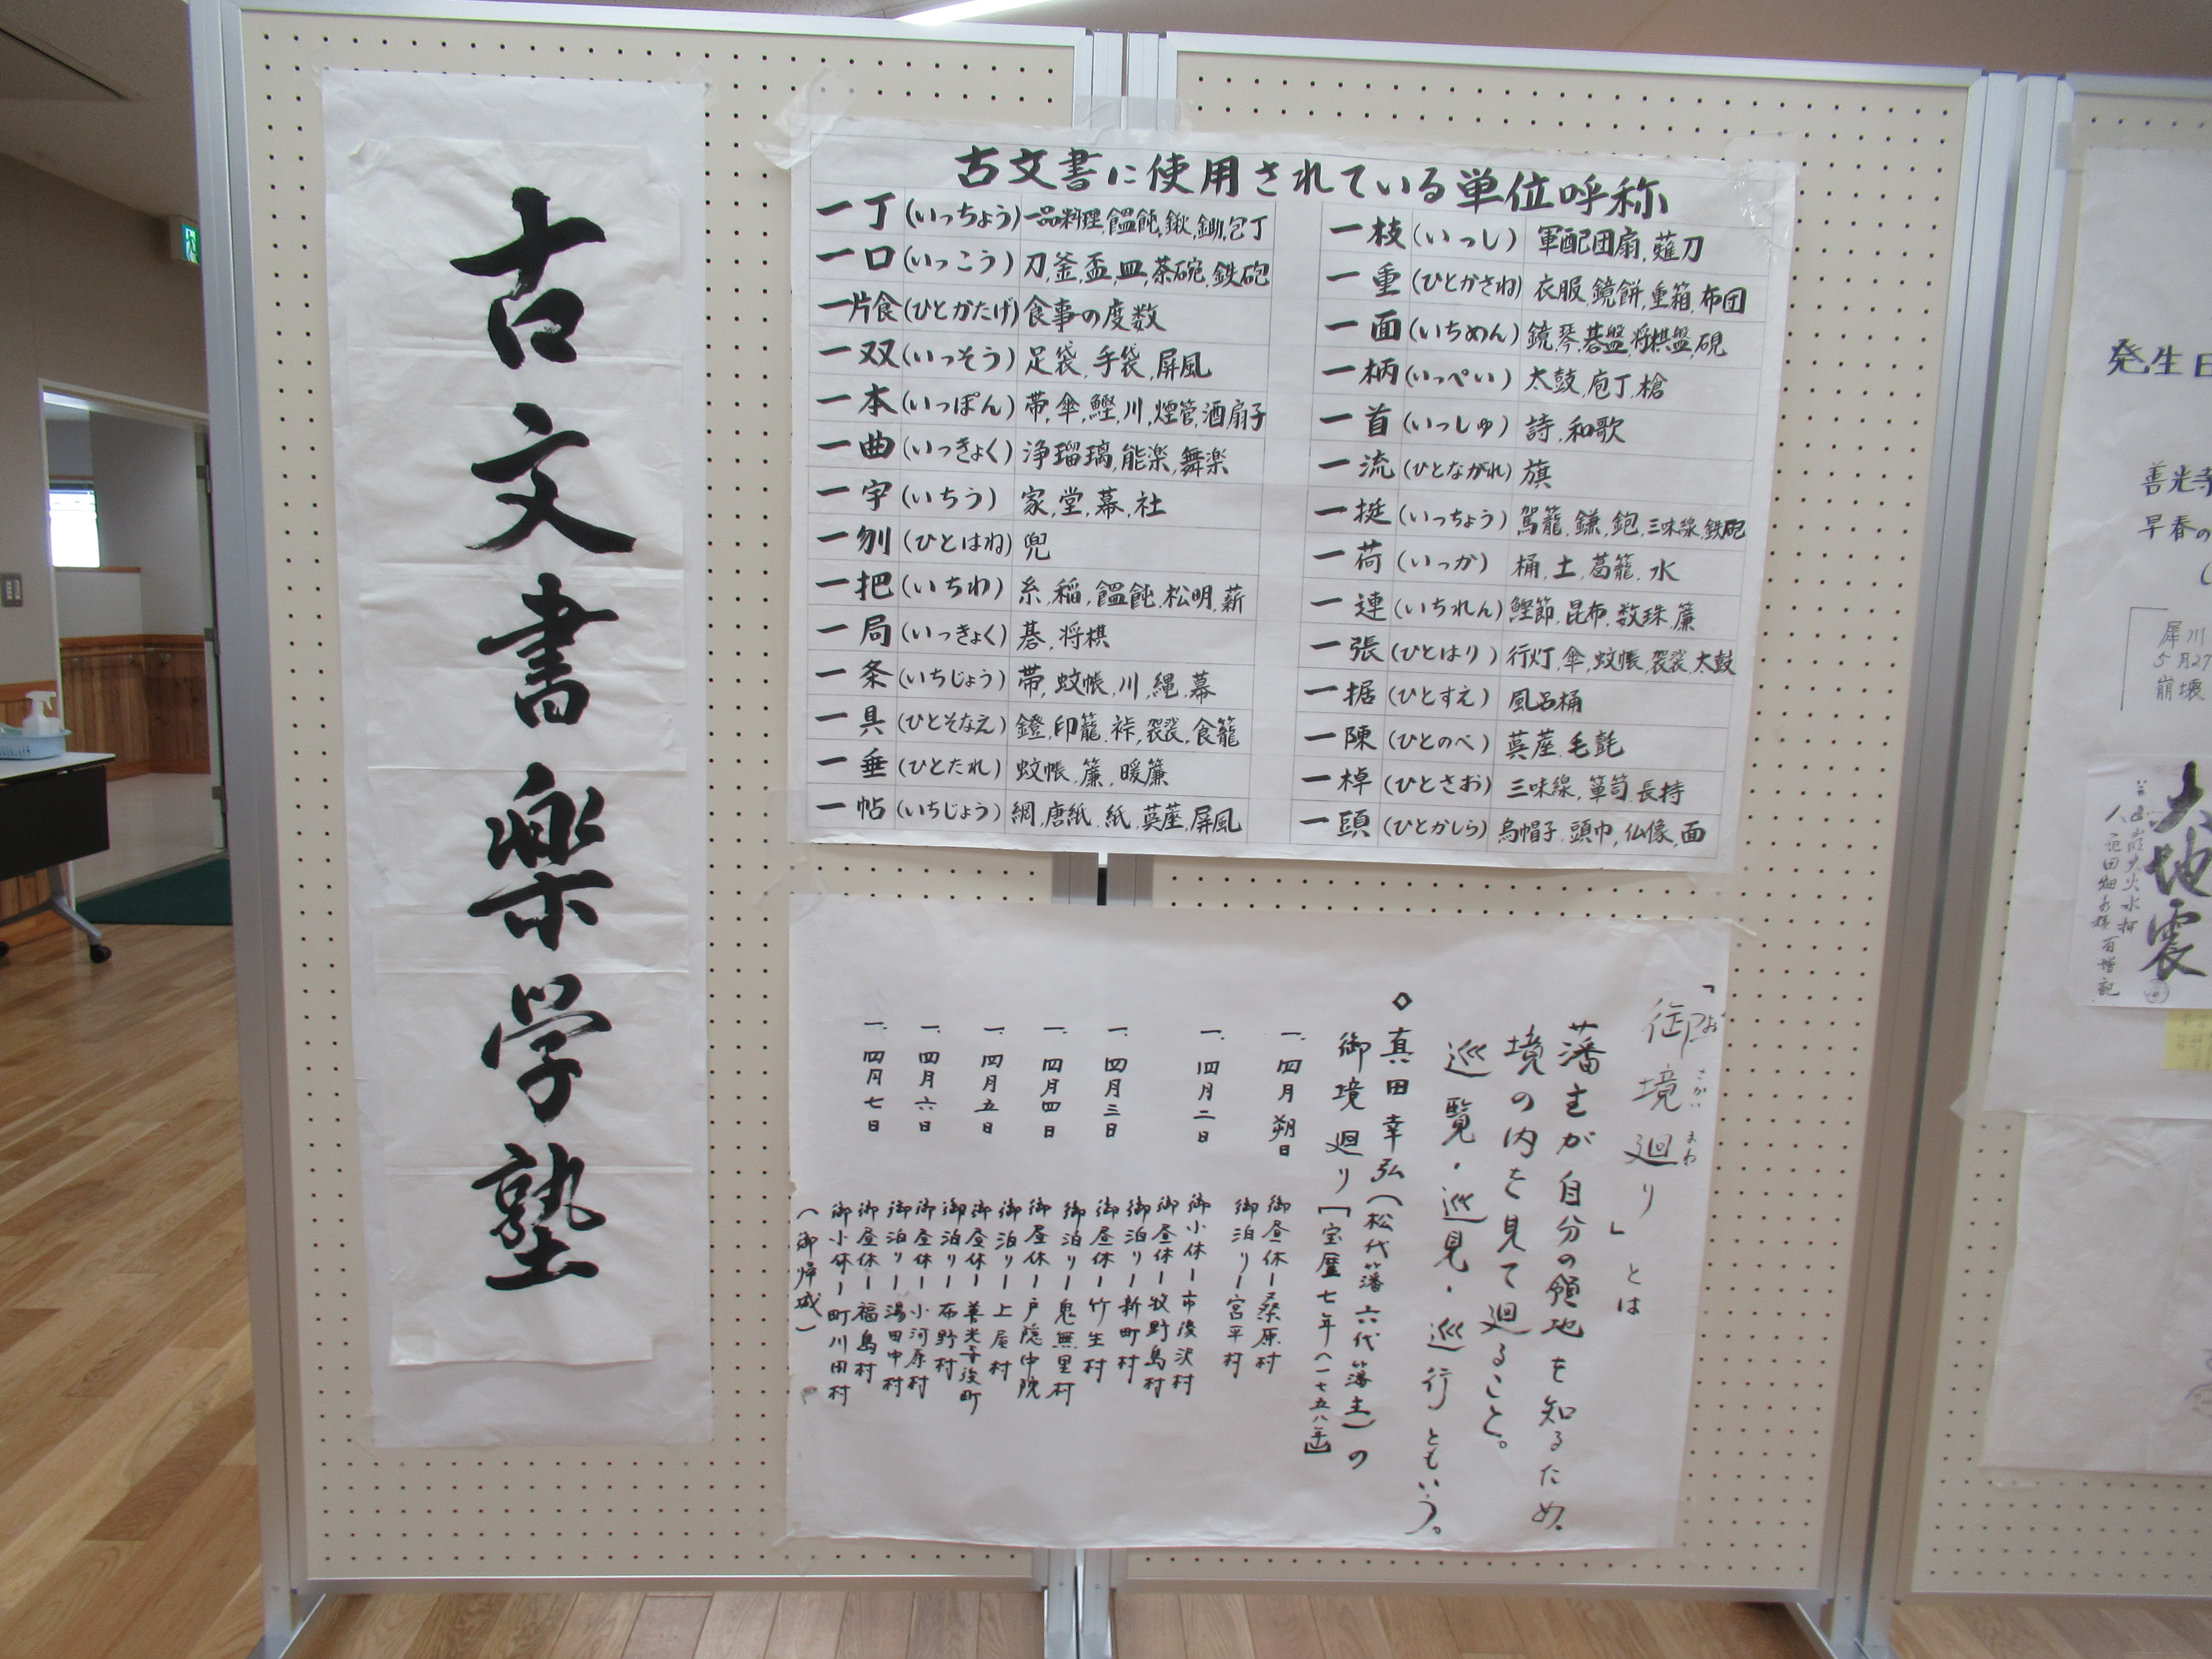 古文書楽学塾
古文書に使用されている単位呼称
一丁(いっちょう)一品料理,饂飩,鍬,鋤,包丁
一口(いっこう)刀,釜,盃,皿,茶碗,鉄砲
一片食(ひとかたげ)食事の度数
一双(いっそう)足袋,手袋,屏風
一本(いっぽん)帯,傘,鰹,川,煙管,酒,扇子
一曲(いっきょく)浄瑠璃,能楽,舞楽
一宇(いちう)家,堂,幕,社
一刎(ひとはね)兜
一把(いちわ)糸,稲,饂飩,松明,薪
一局(いっきょく)碁,将棋
一条(いちじょう)帯,蚊帳,川,縄,幕
一具(ひとそなえ)鐙,印籠,裃,袈裟,食籠
一垂(ひとたれ)蚊帳,簾,暖簾
一帖(いちじょう)網,唐紙,紙,茣蓙,屏風
一枝(いっし)軍配団扇,薙刀
一重(ひとかさね)衣服,鏡餅,重箱,布団
一面(いちめん)鏡,琴,碁盤,将棋盤,硯
一柄(いっぺい)太鼓,庖丁,槍
一首(いっしゅ)詩,和歌
一流(ひとながれ)旗
一挺(いっちょう)駕籠,鎌,鉋,三味線,鉄砲
一荷(いっか)桶,土,葛籠,水
一連(いちれん)鰹節,昆布,数珠,簾
一張(ひとはり)行灯,傘,蚊帳,袈裟,太鼓
一据(ひとすえ)風呂桶
一陳(ひとのべ)茣蓙,毛氈
一棹(ひとさお)三味線,箪笥,長持
一頭(ひとかしら)烏帽子,頭巾,仏像,面
「御境廻り」とは
お さかい まわ
藩主が自分の領地を知るため、
境の内を見て廻ること。
巡覧・巡見・巡行ともいう。
◇真田幸弘(松代藩六代藩主)の
御境廻り[宝暦七年(一七五八年)]
一、四月朔日
御昼休ー桑原村
御泊りー宮平村
一、四月二日
御小休ー市後沢村
御昼休ー牧野島村
御泊りー新町村
一、四月三日
御昼休ー竹生村
御泊りー鬼無里村
一、四月四日
御昼休ー戸隠中院
御泊りー上屋村
一、四月五日
御昼休ー善光寺後町
御泊りー布野村
一、四月六日
御昼休ー小河原村
御泊りー湯田中村
一、四月七日
御昼休ー福島村
御小休ー町川田村
(御帰城)
発生日
善光寺
早春の
犀川
5月27
崩壊
大地震